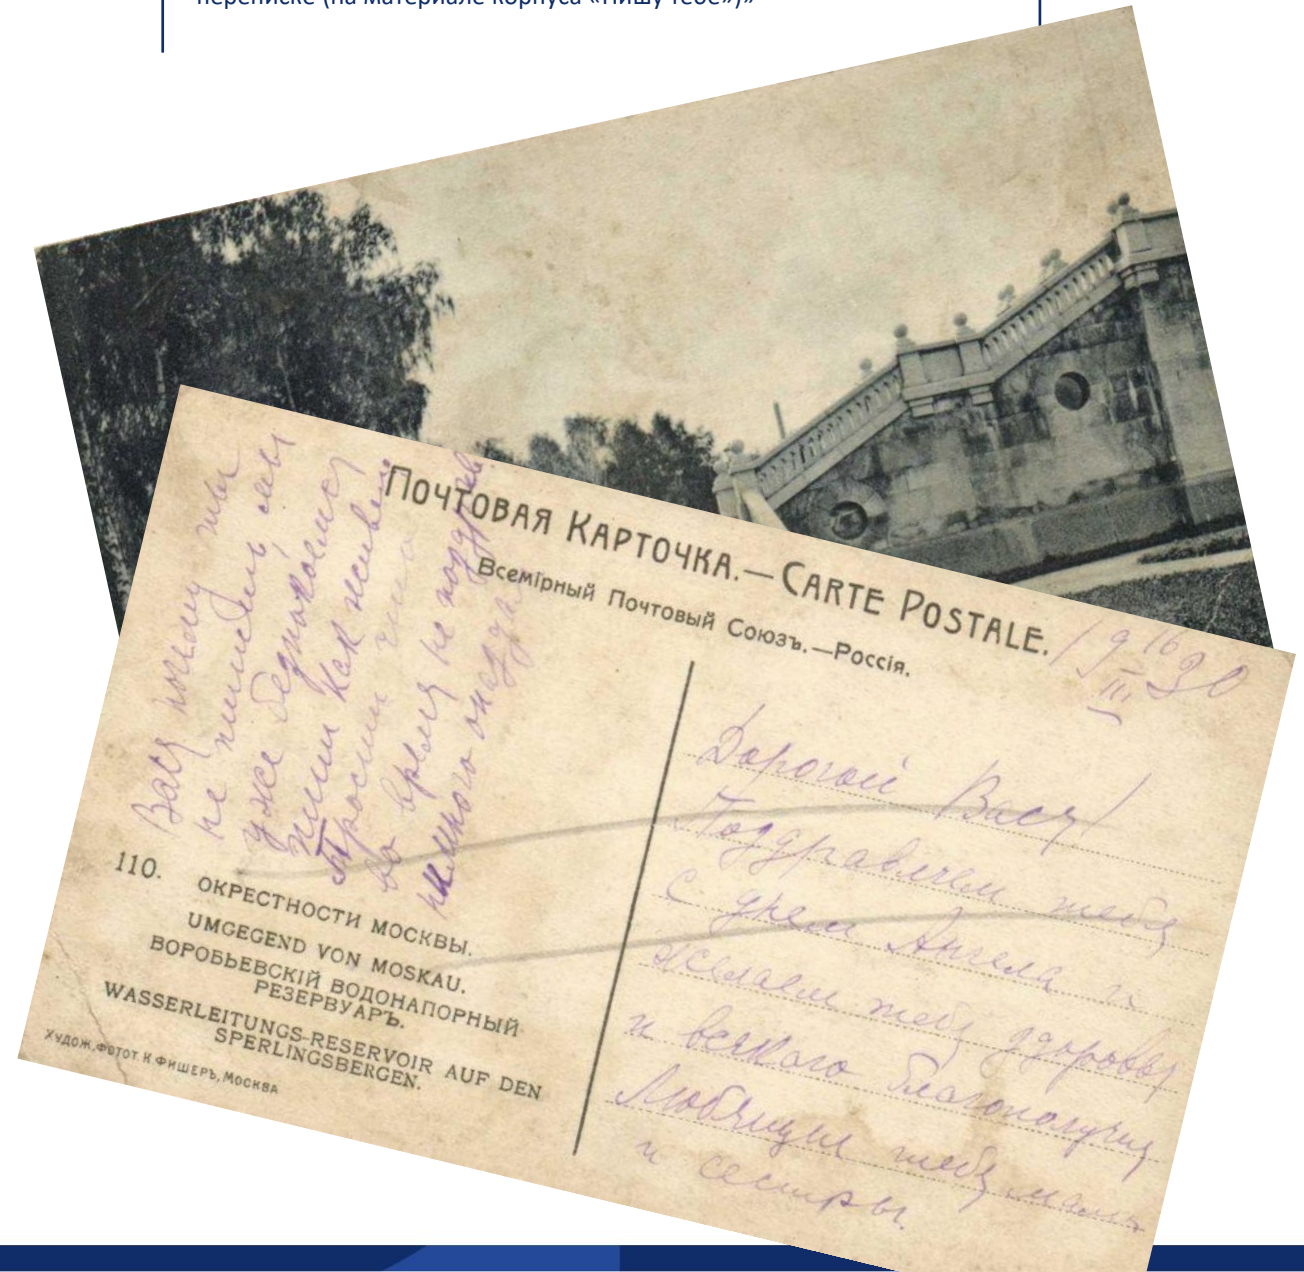 переписке (на материале корпуса «Пишу тебе»)»
Почтовая Карточка.—Carte Postale.
Всемірный Почтовый Союзъ.—Россія.
19 16/III 30
Дорогой Вася!
Поздравляем тебя
с днем Ангела и
желаем тебе здоровья
и всякого благополучия
Любящие тебя мама
и сестры.
Вася почему ты
не пишешь мы
уже беспокоимся
пиши как живешь
Просим что
во время не поздравили
немного опоздали
110.
ОКРЕСТНОСТИ МОСКВЫ.
UMGEGEND VON MOSKAU.
ВОРОБЬЕВСКІЙ ВОДОНАПОРНЫЙ
РЕЗЕРВУАРЪ.
WASSERLEITUNGS-RESERVOIR AUF DEN
SPERLINGSBERGEN.
Худож. Фотот. К Фишеръ, Москва